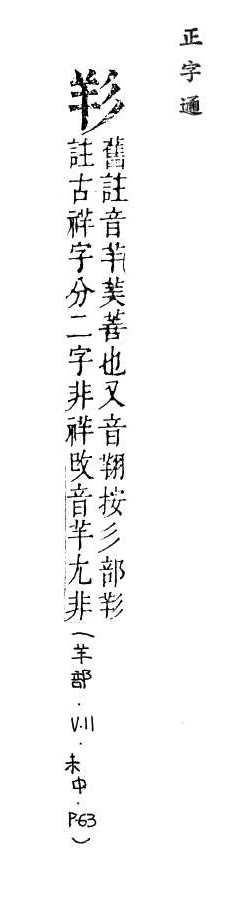 正字通
⿰羊彡
舊註音羊美善也又音翔按彡部⿰羊彡
註古祥字分二字非祥改音羊尤非(羊部.V.11.未中.P.63)